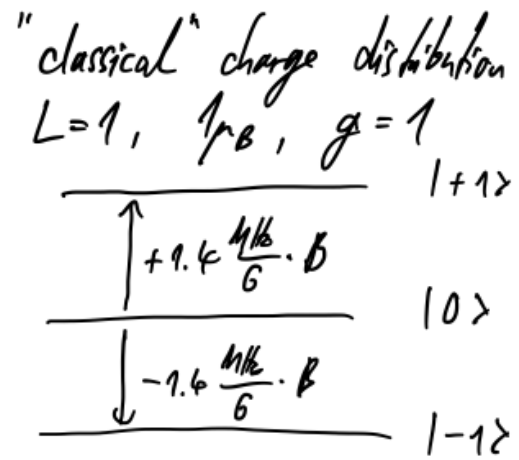 "classical" charge distribution
L=1, 1μB, g=1
|+1>
+1.4 MHz/G · B
|0>
-1.4 MHz/G · B
|-1>